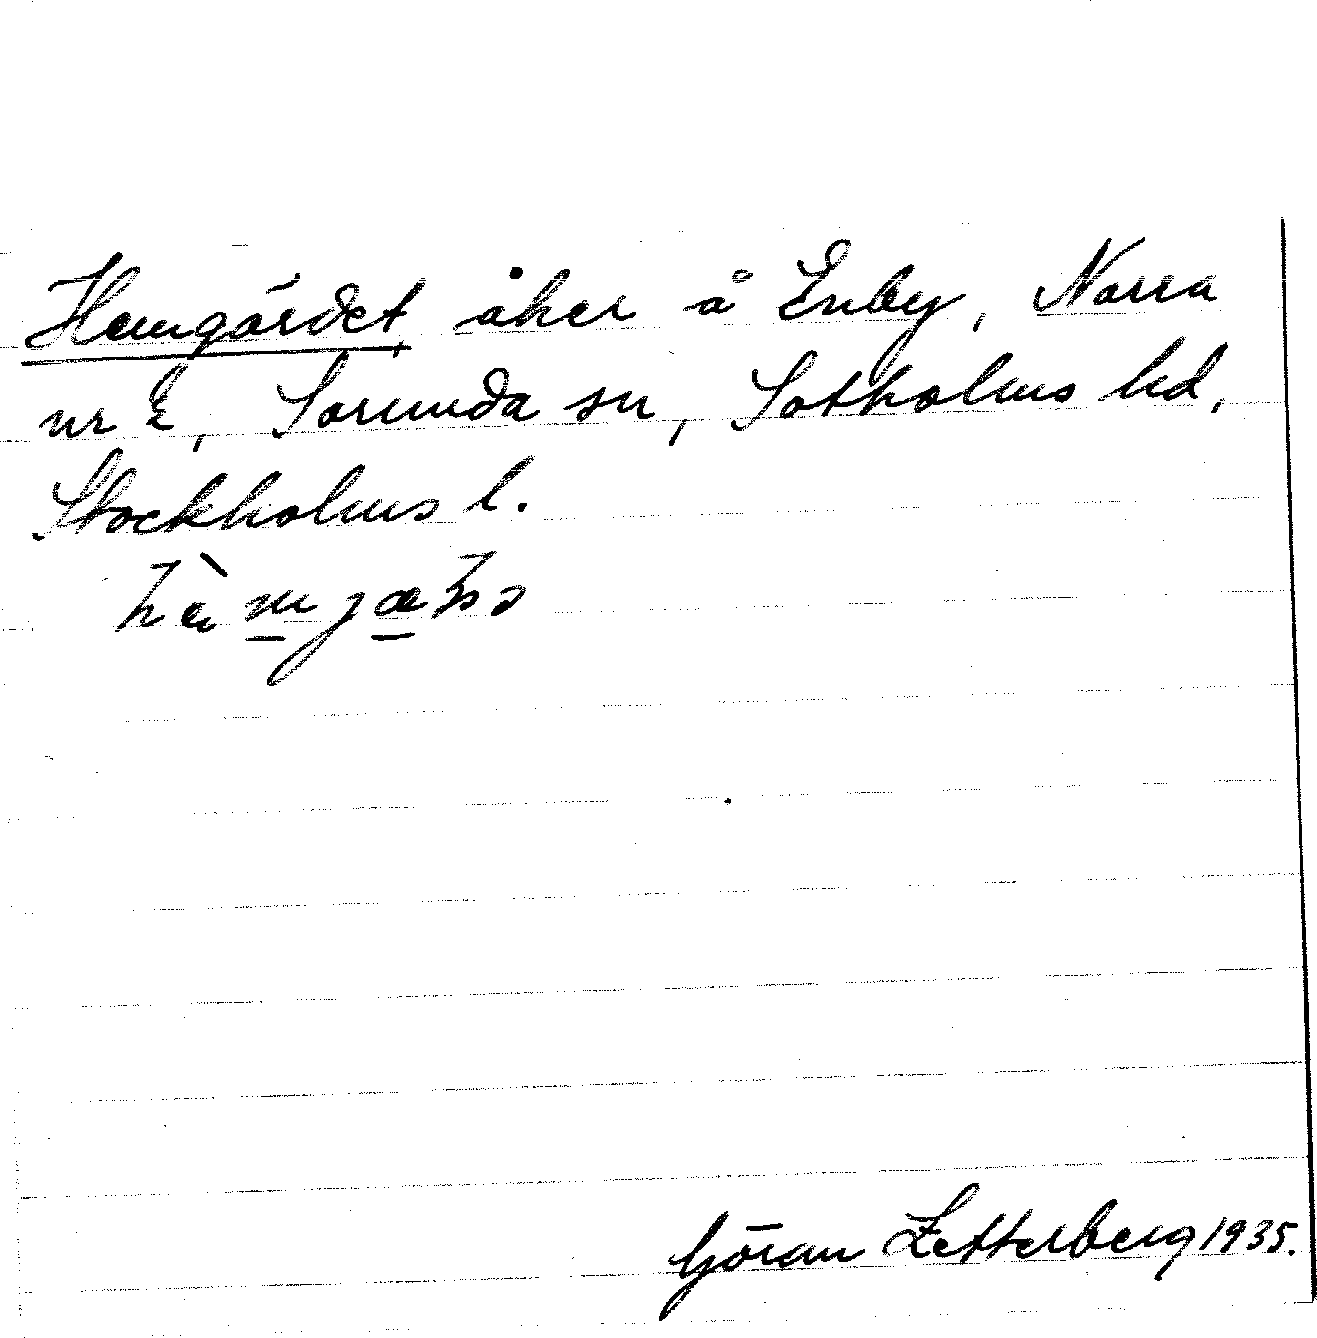 Hemgärdet, åker å Enby, Norra
nr 2, Sorunda sn, Sotholms hd,
Stockholms l.
Göran Zetterberg 1935.